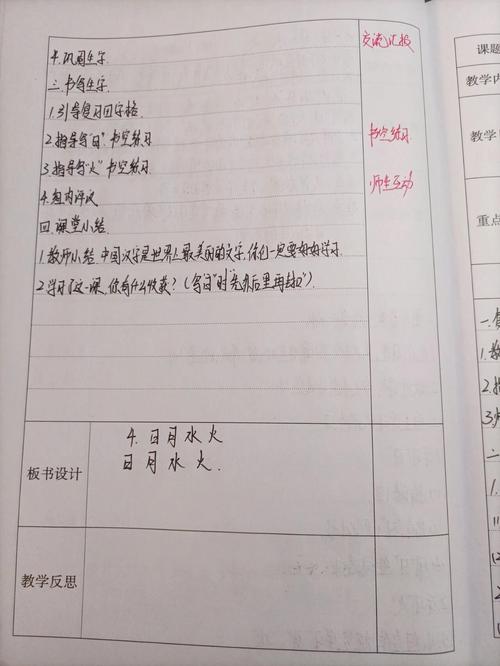 4.巩固生字. 交流汇报
三.书写生字.
1.引导复习田字格.
2.指导写“日”.书空练习. 书空练习.
3.指导写“火”书空练习. 师生互动
4.组内评议
四.课堂小结.
1.教师小结.中国汉字是世界上最美丽的文字,你们一定要好好学习.
2.学习了这一课,你有什么收获?(写“日”时,先外后里再封口”).
板书设计
4.日月水火
日月水火.
教学反思
课题
教学内
教学
重点
一.
1.教
2.指
3.
二.
1.